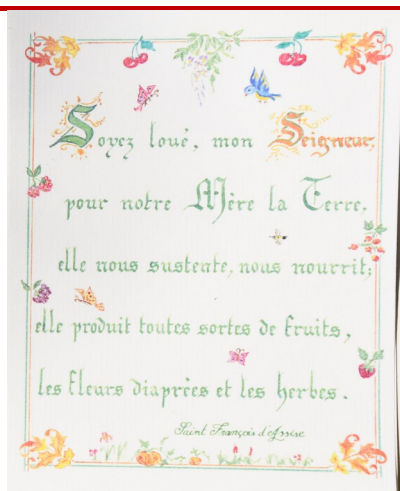 Soyez loué, mon Seigneur,
pour notre Mère la Terre,
elle nous sustente, nous nourrit;
elle produit toutes sortes de fruits,
les fleurs diaprées et les herbes.
Saint François d'Assise